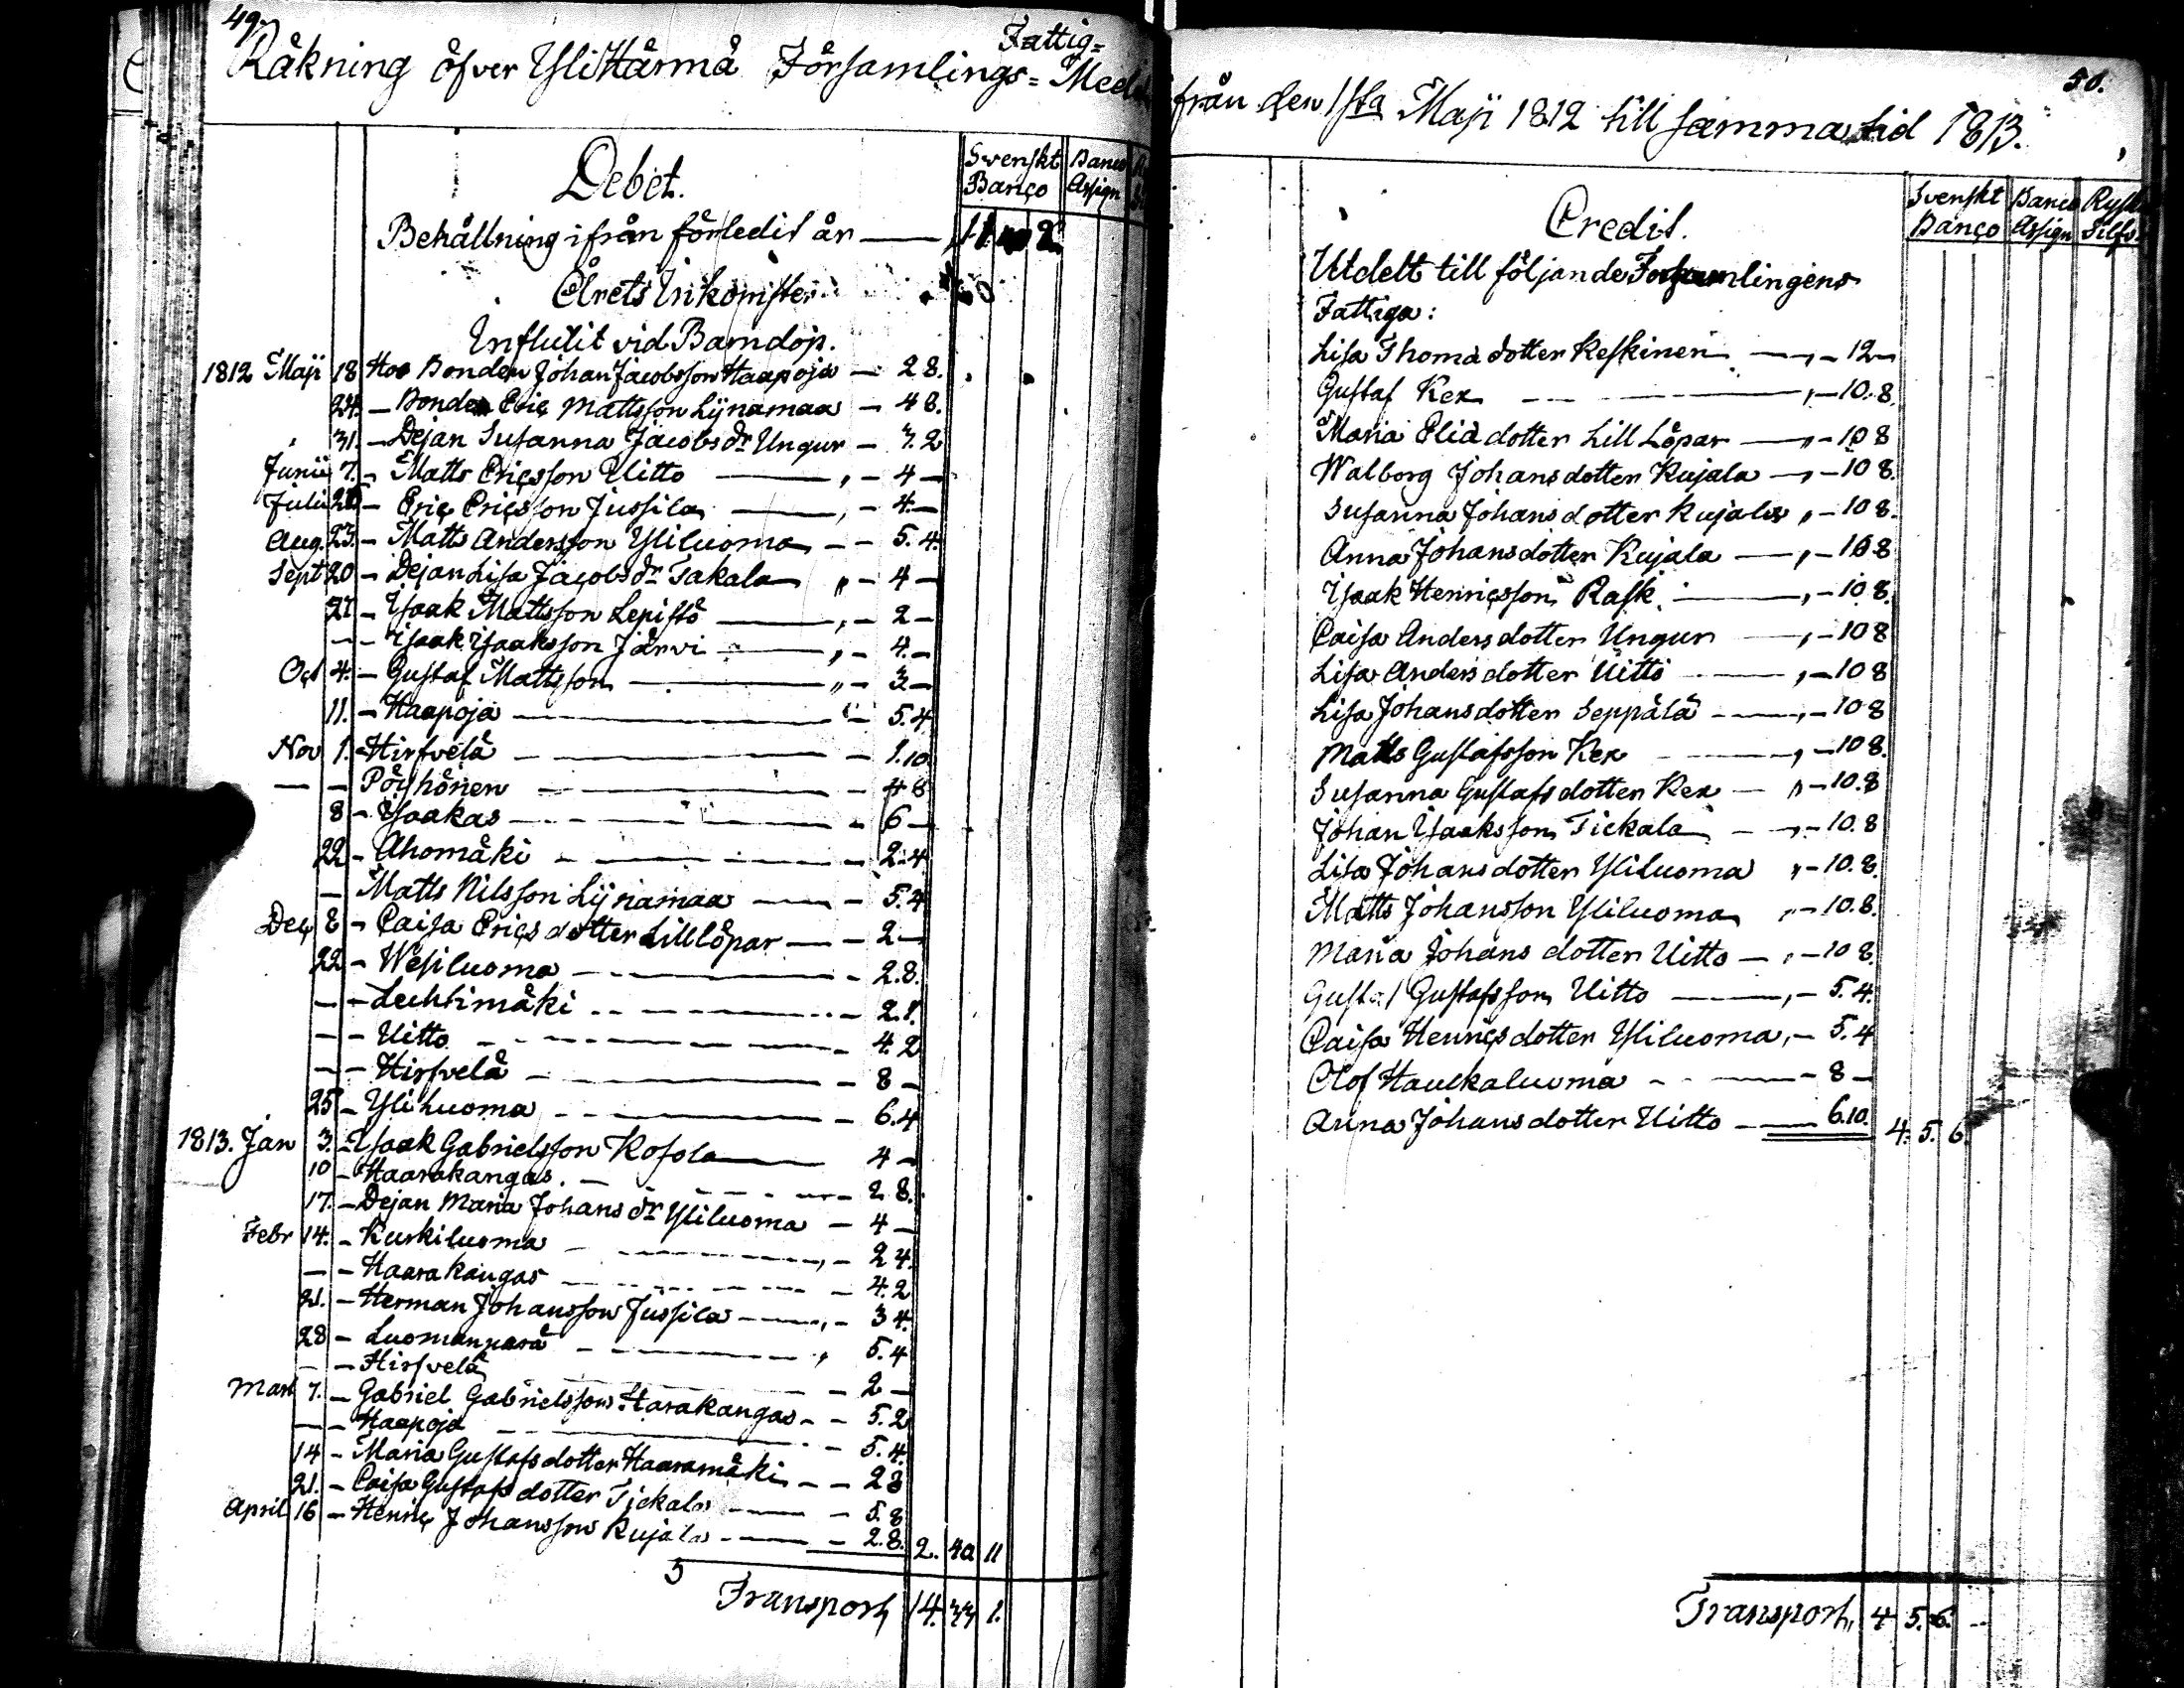 49.
Fattig=
Räkning öfver YliHärmä Församlings= Med
Svenskt Banco
Banco Assign
Debet.
Behållning ifrån förledit år — 11. 2
Årets Inkomster
Influtit vid Barndop.
1812 Maji 18 Hos Bonden Johan Jacobsson Haapoja — 2 8.
24. — Bonden Eric Mattsson Lijnamaa — 4 8.
31. — Dejan Susanna Jacobs dr Ungur — 7. 2
Junii 7. — Matts Ericsson Uitto — " — 4 —
Julii 26 — Eric Ericsson Jussila — " — 4. —
Aug. 23. — Matts Andersson Yliluoma — — 5. 4.
Sept 20 — Dejan Lisa Jacobs dr Takala " — 4 —
27 — Isaak Mattsson Lepistö — " — 2 —
— — Isaak Isaaksson Järvi — " — 4. —
Oct 4. — Gustaf Mattsson — " — 3 —
11. — Haapoja — " — 5. 4
Nov 1. — Hirfvelä — — 1. 10.
— — Pöyhönen — — 4 8
8 — Isaakas — — 6 —
22 — Ahomäki — — 2. 4
— Matts Nilsson Lijnamaa — — 5. 4
Dec 8 — Caisa Erics dotter Lill löpar — — 2 —
22 — Wesiluoma — — 2. 8.
— — Lechtimäki — — 2. 8.
— — Uitto — — 4. 2
— — Hirfvelä — — 8 —
25 — Yliluoma — — 6. 4
1813. Jan 3. — Isaak Gabrielsson Kosola — 4 —
10 — Haarakangas. — — 2 8.
17. — Dejan Maria Johans dr Yliluoma — 4 —
Febr 14. — Kuskiluoma — " — 2 4.
— — Haarakangas — — 4. 2
21. — Herman Johansson Jussila — " — 3 4.
28 — Luomanperä — " 5. 4
— — Hirfvelä — — 2 —
Mart 7. — Gabriel Gabrielsson Harakangas — — 5. 2
— — Haapoja — — 5. 4.
14 — Maria Gustafs dotter Haaramäki — — 2 8
21. — Caisa Gustafs dotter Tickala — — 5. 8
April 16 — Henric Johansson Kujala — — 2. 8. 2. 40 11
5
Transport, 14. 33 1.
50.
från den 1sta Maji 1812 till samma tid 1813.
Svenskt Banco
Banco Assign
Rysk Silfv.
Credit.
Utdelt till följande Församlingens
Fattiga:
Lisa Thomä dotter Keskinen — " — 12 —
Gustaf Kex — " — 10. 8.
Maria Eliä dotter Lill Löpar — " — 10 8
Walborg Johans dotter Kujala — " — 10 8.
Susanna Johans dotter Kujala " — 10 8.
Anna Johans dotter Kujala — " — 10 8
Isaak Henricsson Rask — " — 10. 8.
Caisa Anders dotter Ungur — " — 10 8
Lisa Anders dotter Uitto — " — 10 8
Lisa Johans dotter Seppälä — " — 10 8
Matts Gustafsson Kex — " — 10 8.
Susanna Gustafs dotter Kex — " — 10. 8
Johan Isaaksson Tickala — " — 10. 8
Lisa Johans dotter Yliluoma " — 10. 8.
Matts Johansson Yliluoma " — 10. 8.
Maria Johans dotter Uitto — " — 10 8.
Gustaf Gustafsson Uitto — " — 5. 4.
Caisa Henrics dotter Yliluoma, — 5. 4
Olof Haukaluoma — — 8 —
Anna Johans dotter Uitto — 6. 10. 4. 5. 6.
Transport, 4 5. 6. —